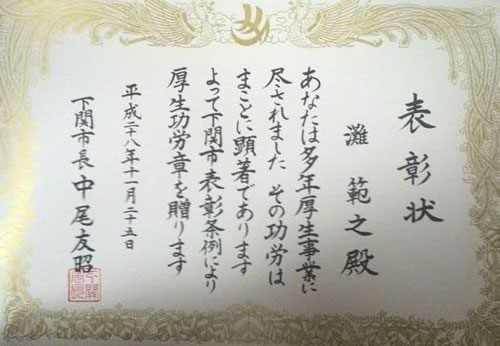 表彰状
灘範之殿
あなたは多年厚生事業に
尽されました その功労は
まことに顕著であります
よって下関市表彰条例により
厚生功労章を贈ります
平成二十八年十一月二十五日
下関市長 中尾友昭